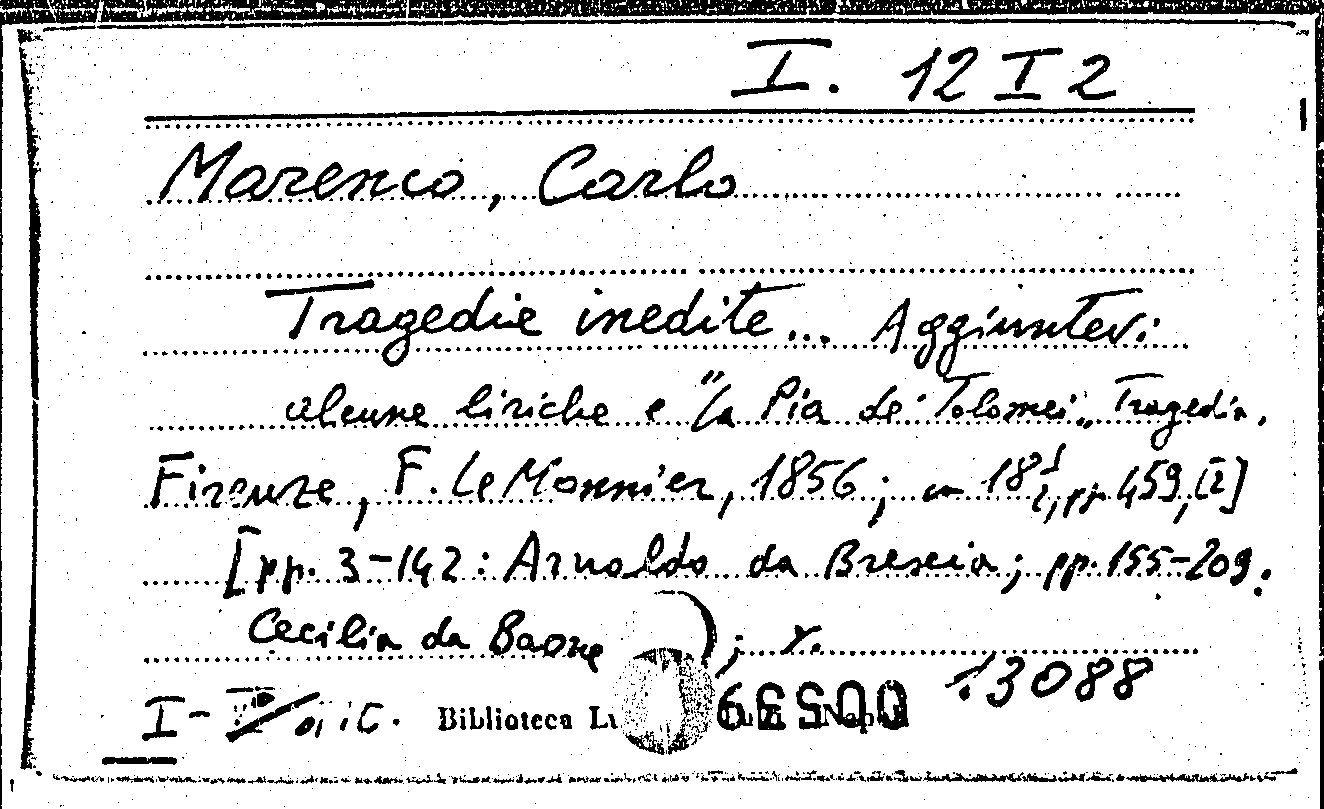 I. 12 I 2
Marenco, Carlo
Tragedie inedite... Aggiuntevi
alcune liriche e "la Pia de' Tolomei„ Tragedia.
Firenze, F. Le Monnier, 1856; in 18½, pp. 459, [2]
[pp. 3-142: Arnoldo da Brescia; pp. 155-209:
Cecilia da Baone ); r.
13088
I-
Biblioteca Lu
00539